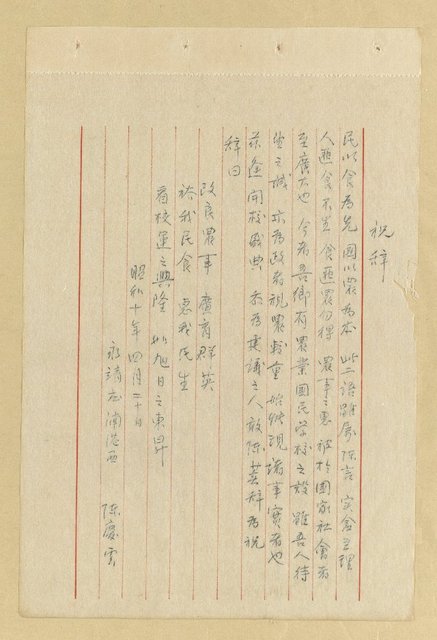 祝辞
民以食為先 國以農為本 此二語雖屬陳言 实含至理
人匪食不生 食匪農勿得 農事之惠 被於國家社會者
至廣大也 今者吾鄉有農業國民学校之設 雖吾人待
望之誠 亦為政者視農彰重 始終現諸事實者也
茲逢開校盛典 忝為建議之人 敢陳蕪辞為祝
辞曰
改良農事 廣育群英
裕我民食 惠我民生
看校運之興隆 比旭日之東昇
昭和十年四月二十日
永靖庄湳港西 陳慶雲